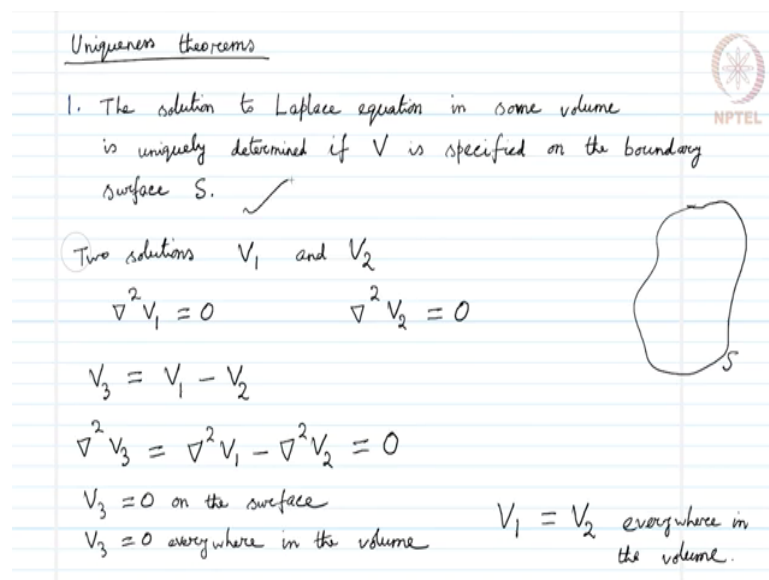 Uniqueness theorems
NPTEL
1. The solution to Laplace equation in some volume
is uniquely determined if V is specified on the boundary
surface S. ✓
Two solutions V₁ and V₂
∇²V₁ = 0 ∇²V₂ = 0
S
V₃ = V₁ − V₂
∇²V₃ = ∇²V₁ − ∇²V₂ = 0
V₃ = 0 on the surface
V₃ = 0 everywhere in the volume
V₁ = V₂ everywhere in
the volume.